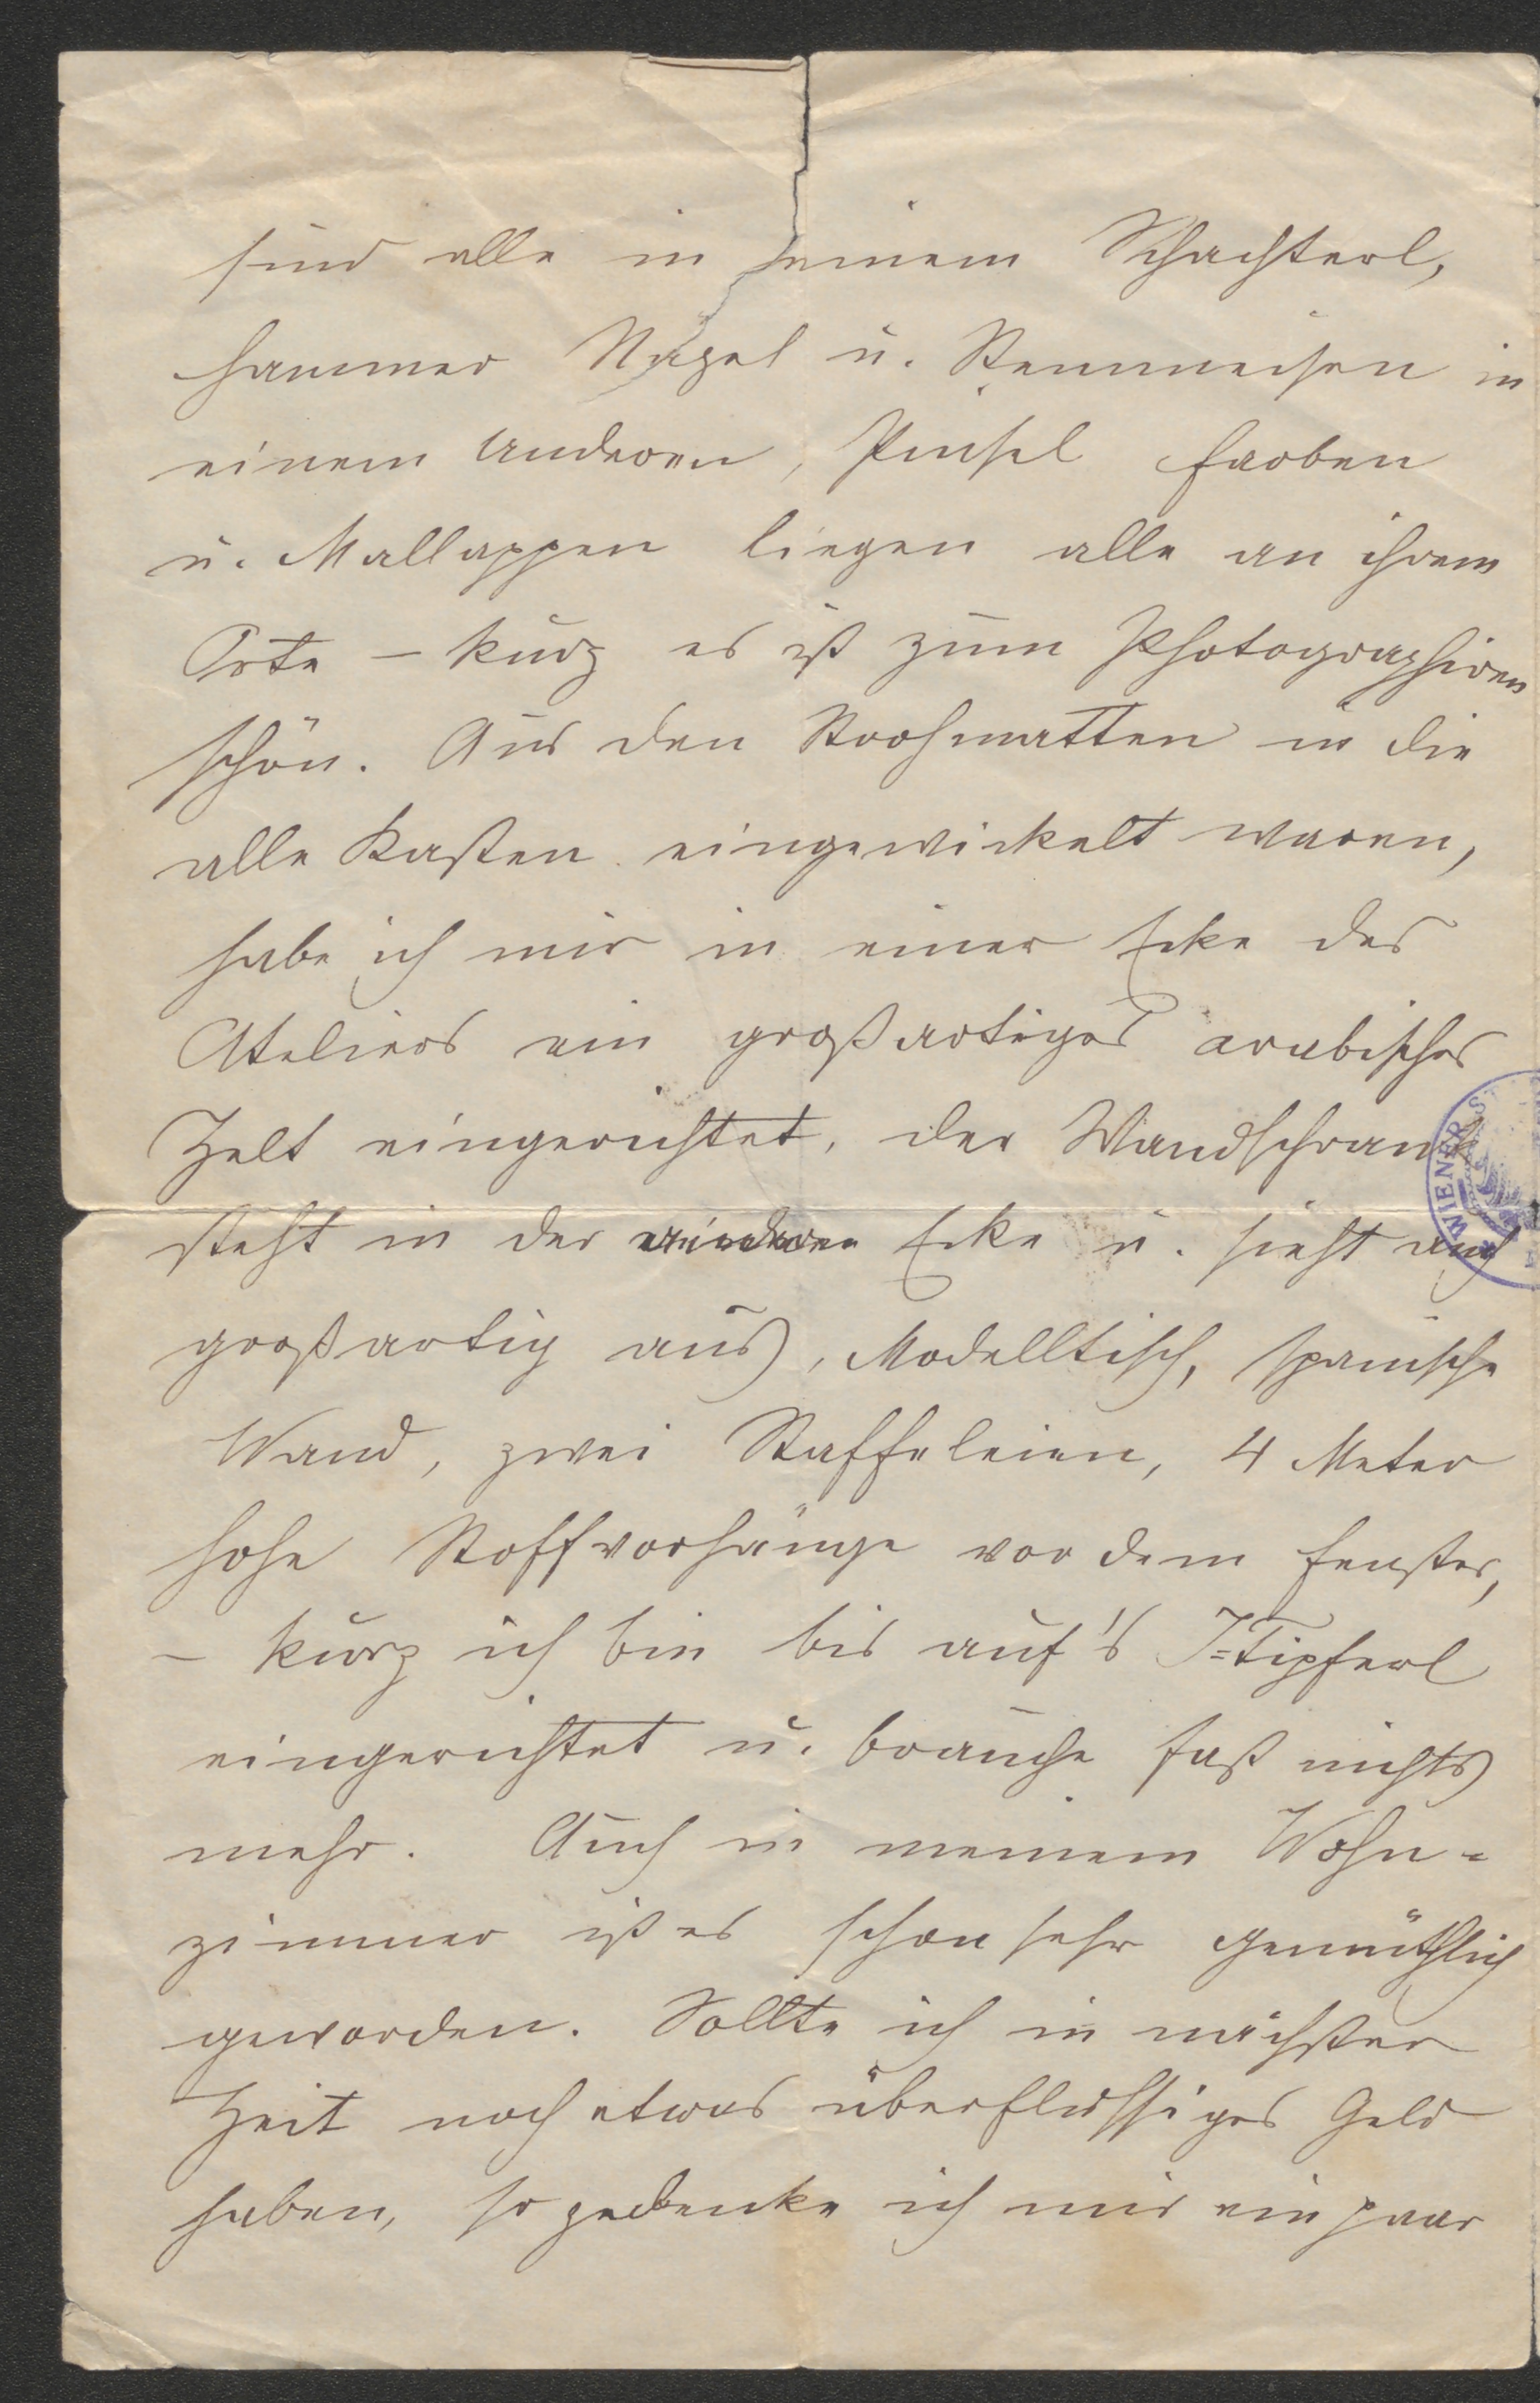 sind alle in einem Schachterl,
Hammer Nägel u. Stemmeisen in
einem Anderen, Pinsel Farben
u. Mallappen liegen alle an ihrem
Orte – kurz es ist zum Photographiren
schön. Aus den Strohmatten in die
alle Kasten eingewickelt waren,
habe ich mir in einer Ecke des
Ateliers ein großartiges arabisches
Zelt eingerichtet, der Wandschrank
steht in der anderen Ecke u. sieht auch
großartig aus, Modelltisch, spanische
Wand, zwei Staffeleien, 4 Meter
hohe Stoffvorhänge vor dem Fenster,
– kurz ich bin bis auf's I=Tipferl
eingerichtet u. brauche fast nichts
mehr. Auch in meinem Wohn=
zimmer ist es schon sehr gemüthlich
geworden. Sollte ich in nächster
Zeit noch etwas überflüssiges Geld
haben, so gedenke ich mir ein paar
WIENER